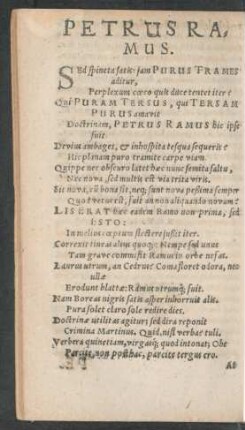 PETRUS RA,
MUS.
SEd spineta satis: jam PURUS TRAMES
aditur,
Perplexum cæco quis duce tentet iter?
Qui PURAM TERSUS, qui TERSAM
PURUS amavit
Doctrinam, PETRUS RAMUS hic ipse
fuit
Devius ambages, & inhospita tesqua sequeris?
Hic planam puro tramite carpe viam.
Quippe nec obscuro latet hæc nunc semita saltu,
Nec nova, sed multis est via trita viris.
Sic nova, cũ bona sit, neq; sunt nova pessima semper
Quod vetus est, fuit annon aliquando novum?
LISERAT hæc eadem Ramo non prima, sed
ISTO:
In melius cœptum flectere jussit iter.
Correxit tineas alius quoq; Nempe sed unus
Tam grave commisit Ramus in orbe nefas.
Laurus utrum, an Cedrus? Coma floret odora,
Erodunt blattæ: Ramus utrumq; fuit.
Nam Boreas nigris satis asper inhorruit alis.
Pura solet claro sole redire dies.
Doctrinæ utilitas agitur: sed dira reponit
Crimina Martinus. Quid, nisi verbae tuli.
Verbera quinetiam, virgasq; quod intonat; Ohe
Parcite, non posthac, parcite tergus ero.